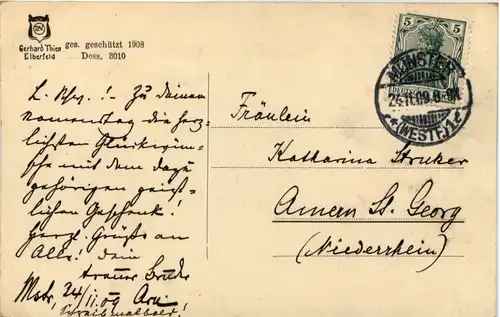 Gerhard Thien
Elberfeld
ges. geschützt 1908
Dess. 3010
5 5
DEUTSCHES REICH
MÜNSTER
24.11.09.8-9N
* (WESTF.) c
L. Schw.! – Zu deinem
Namenstag die herz-
lichsten Glückwün-
sche mit dem dazu
gehörigen geist-
lichen Geschenk!
Herzl. Grüße an
Alle! Dein
treuer Bruder
Mstr, 24/11.09
Schreib mal bald!
Fräulein
Katharina Struker
Amern St. Georg
(Niederrhein)